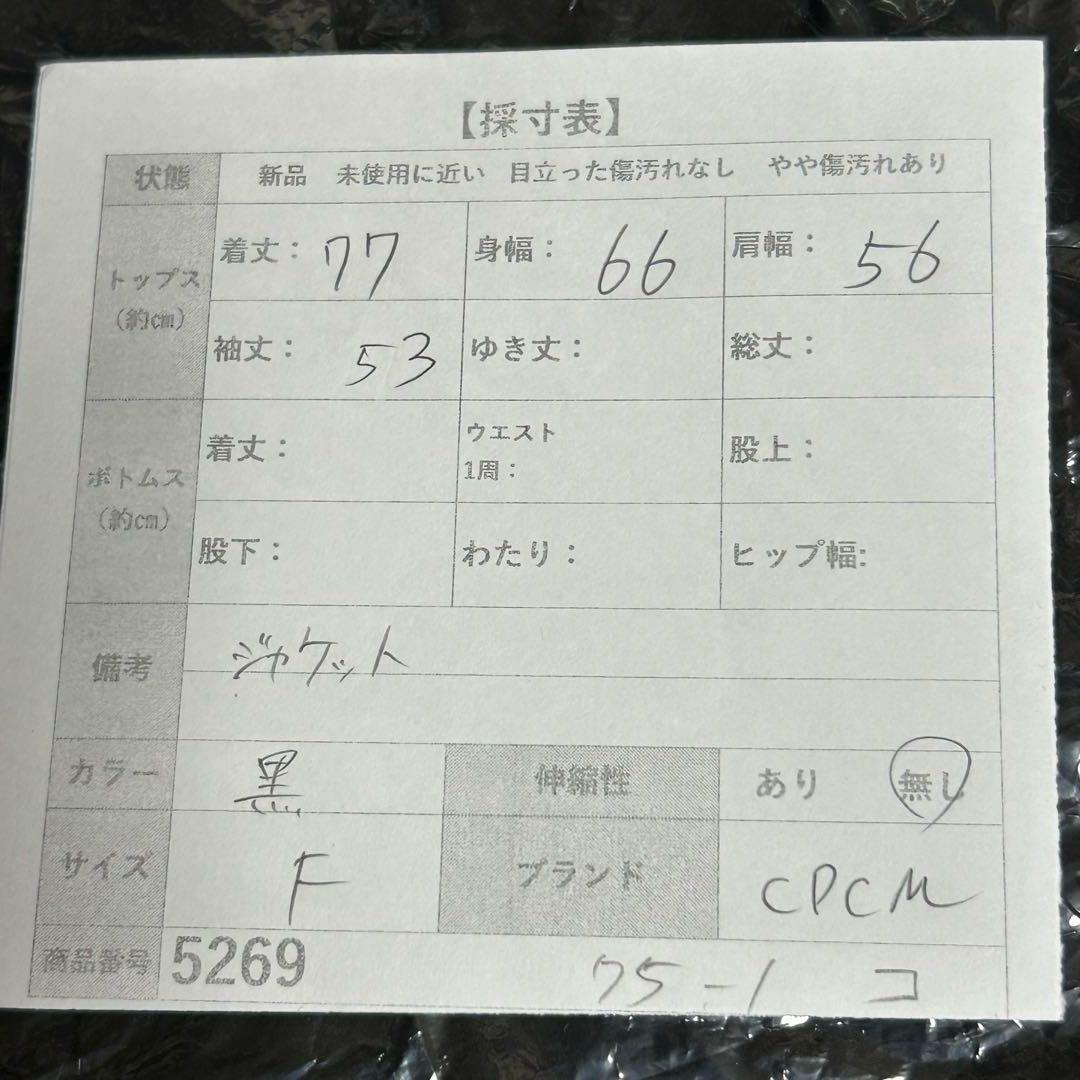 【採寸表】
状態 新品 未使用に近い 目立った傷汚れなし やや傷汚れあり
トップス (約cm)
着丈： 77 身幅： 66 肩幅： 56
袖丈： 53 ゆき丈： 総丈：
ボトムス (約cm)
着丈： ウエスト 1周： 股上：
股下： わたり： ヒップ幅:
備考 ジャケット
カラー 黒 伸縮性 あり 無し
サイズ F ブランド CPCM
商品番号 5269 75-1 コ